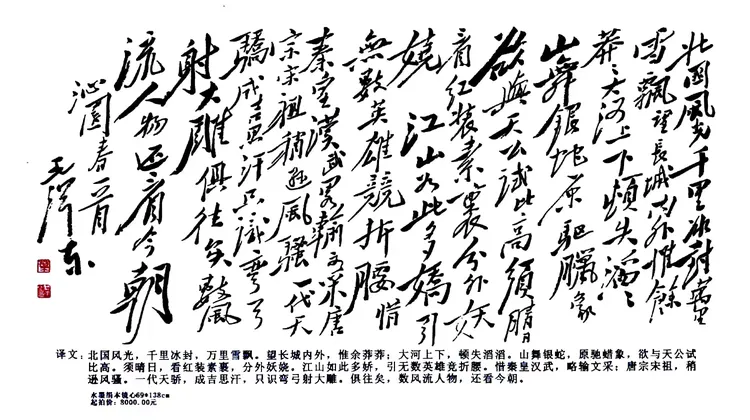 北国風光千里冰封萬里
雪飄望長城内外惟餘
莽莽大河上下頓失滔滔
山舞銀蛇原馳臘象
欲與天公試比高須晴日
看红装素裹分外妖
嬈江山如此多嬌引
無數英雄競折腰惜
秦皇漢武略輸文采唐
宗宋祖稍遜風騷一代天
驕成吉思汗只識彎弓
射大雕俱往矣數風
流人物还看今朝
沁園春一首
毛澤东
译文：北国风光，千里冰封，万里雪飘。望长城内外，惟余莽莽；大河上下，顿失滔滔。山舞银蛇，原驰蜡象，欲与天公试
比高。须晴日，看红装素裹，分外妖娆。江山如此多娇，引无数英雄竞折腰。惜秦皇汉武，略输文采；唐宗宋祖，稍
逊风骚。一代天骄，成吉思汗，只识弯弓射大雕。俱往矣，数风流人物，还看今朝。
水墨纸本镜心69*138cm
起拍价：8000.00元